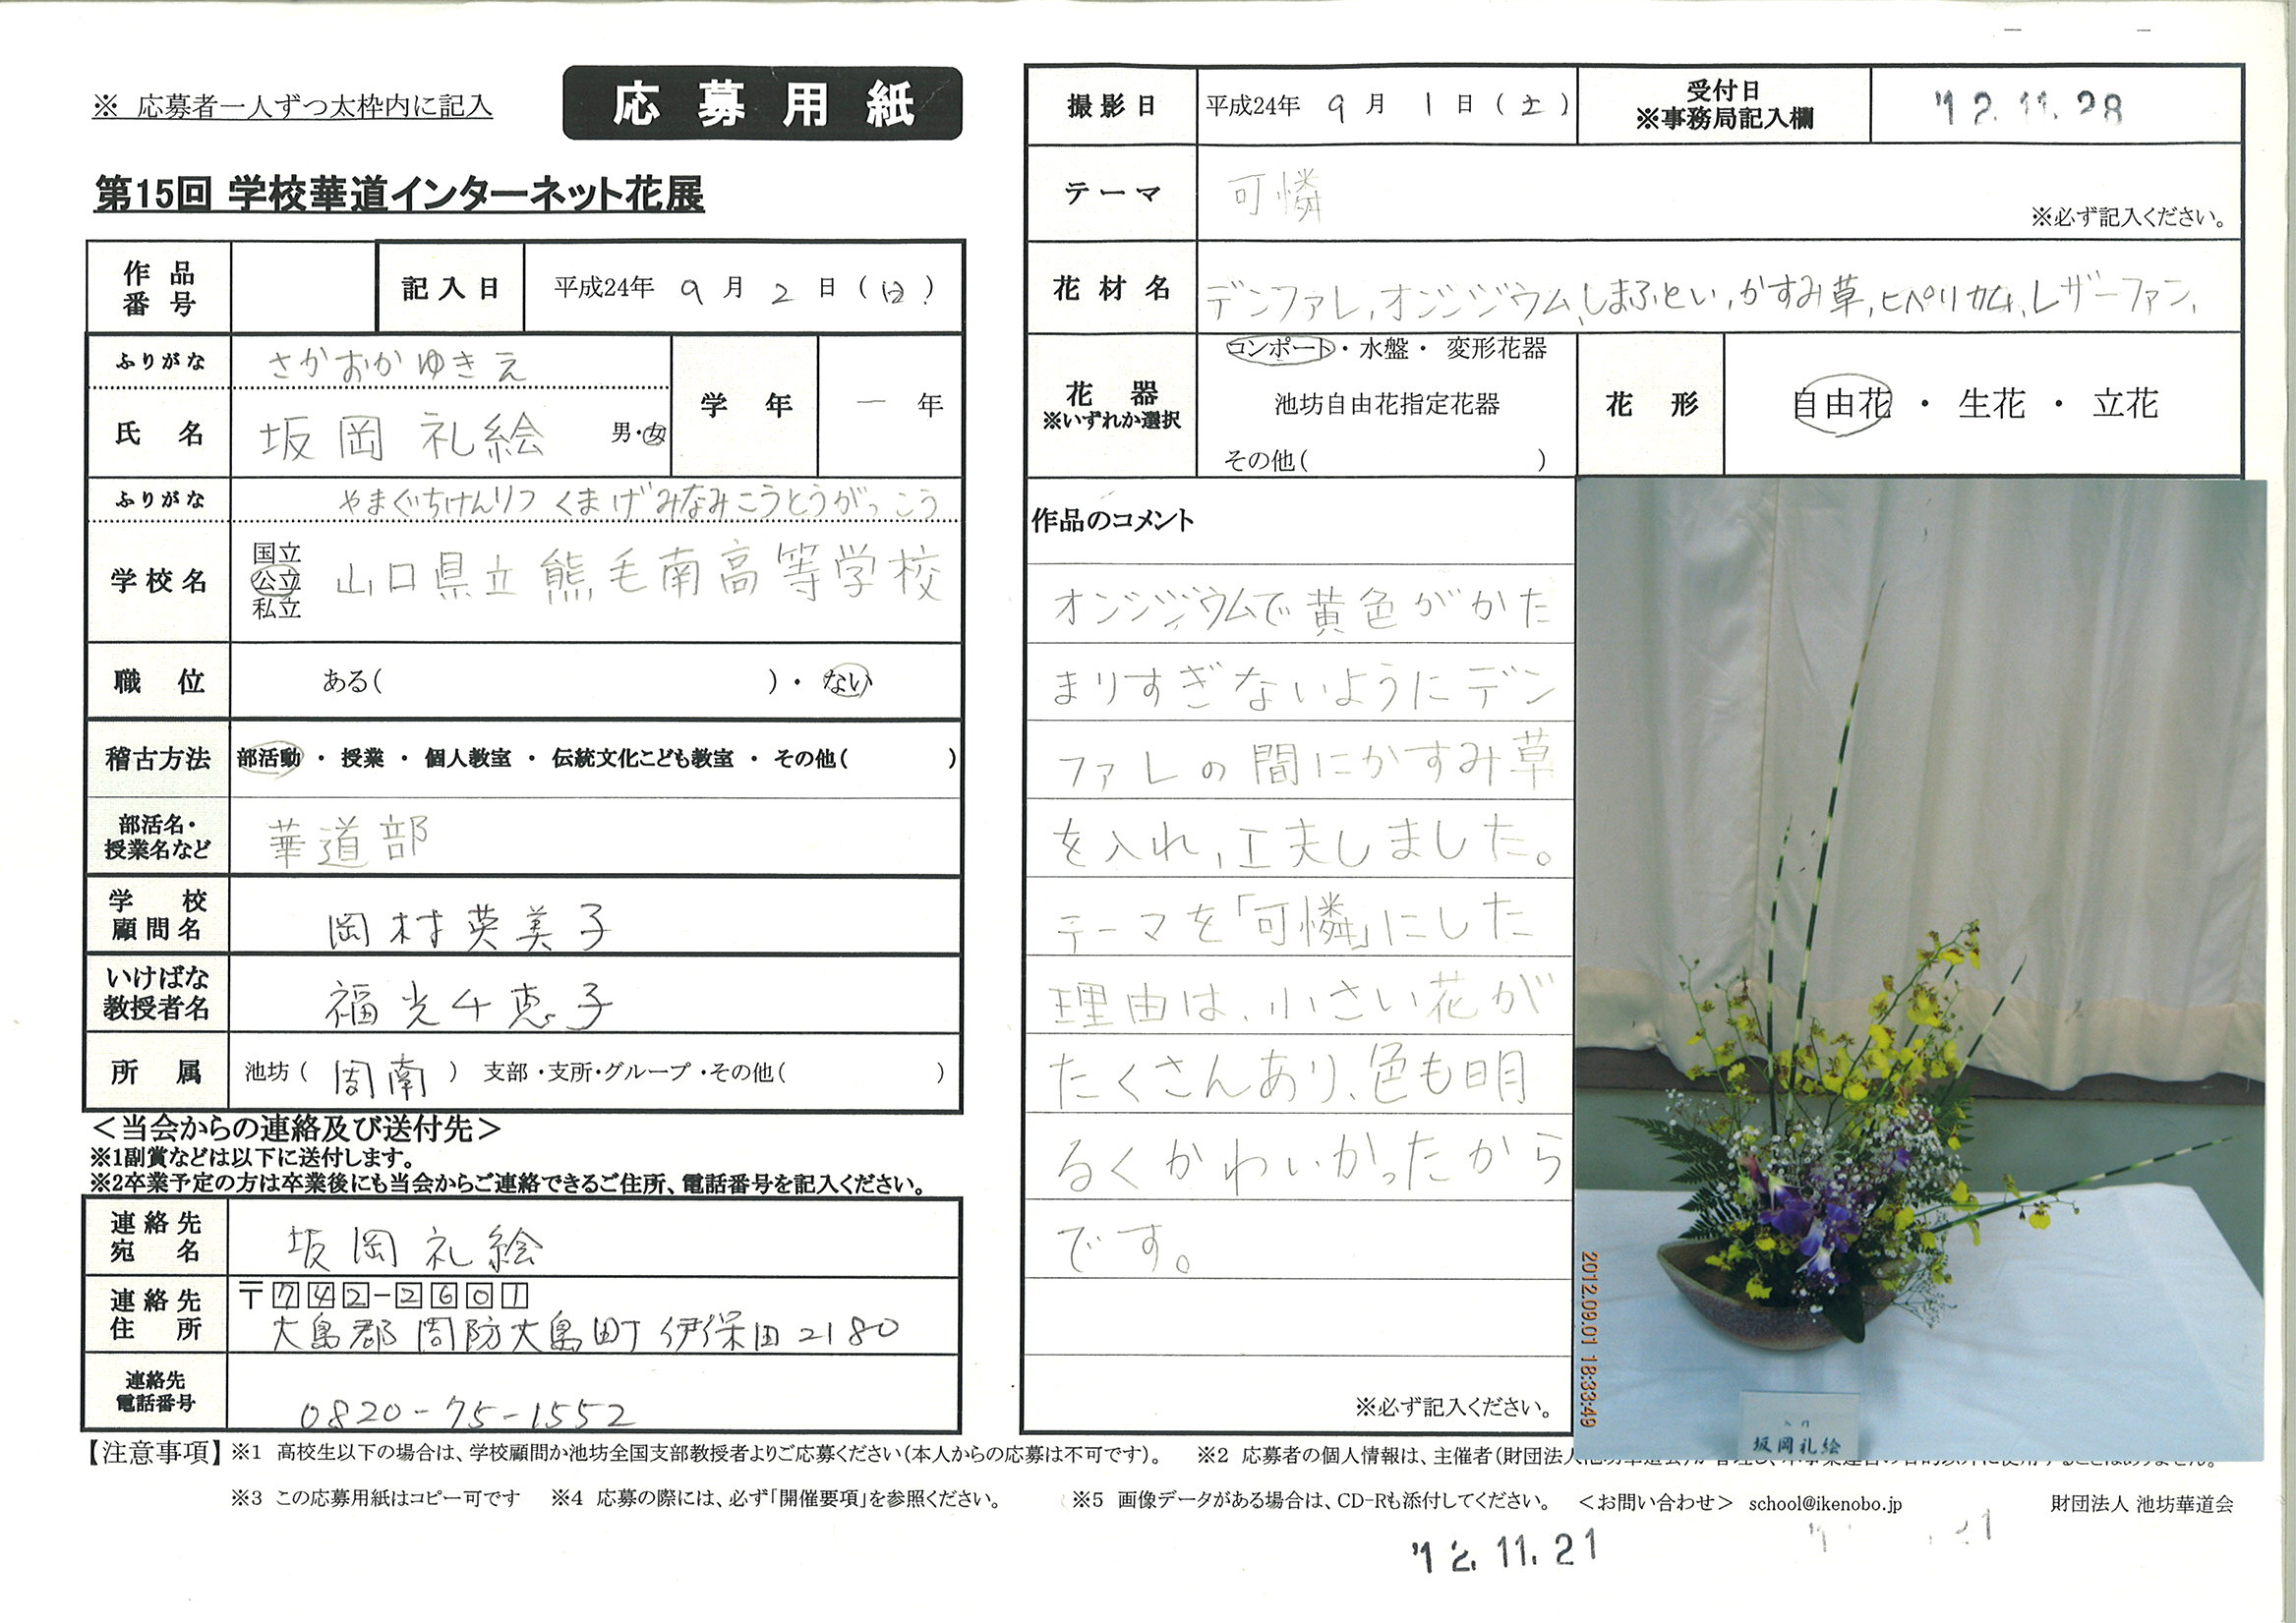 ※ 応募者一人ずつ太枠内に記入
応募用紙
第15回 学校華道インターネット花展
作品番号
記入日 平成24年 9月 2日(日)
ふりがな さかおかゆきえ
氏名 坂岡 礼絵 男・女
学年 一年
ふりがな やまぐちけんりつ くまげみなみこうとうがっこう
学校名 国立 公立 私立 山口県立熊毛南高等学校
職位 ある( )・ない
稽古方法 部活動 ・ 授業 ・ 個人教室 ・ 伝統文化こども教室 ・ その他( )
部活名・授業名など 華道部
学校顧問名 岡村英美子
いけばな教授者名 福光千恵子
所属 池坊( 周南 ) 支部・支所・グループ・その他( )
<当会からの連絡及び送付先>
※1副賞などは以下に送付します。
※2卒業予定の方は卒業後にも当会からご連絡できるご住所、電話番号を記入ください。
連絡先宛名 坂岡礼絵
連絡先住所 〒742-2601
大島郡周防大島町伊保田2180
連絡先電話番号 0820-75-1552
撮影日 平成24年 9月 1日(土)
受付日 ※事務局記入欄 '12.11.28
テーマ 可憐 ※必ず記入ください。
花材名 デンファレ,オンジジウム,しまふとい,かすみ草,ヒペリカム,レザーファン,
花器 ※いずれか選択 コンポート・水盤・ 変形花器
池坊自由花指定花器
その他( )
花形 自由花 ・ 生花 ・ 立花
作品のコメント
オンジジウムで黄色がかた
まりすぎないようにデン
ファレの間にかすみ草
を入れ,工夫しました。
テーマを「可憐」にした
理由は、小さい花が
たくさんあり、色も明
るくかわいかったから
です。
※必ず記入ください。
2012.09.01 18:33:49
坂岡礼絵
【注意事項】 ※1 高校生以下の場合は、学校顧問か池坊全国支部教授者よりご応募ください(本人からの応募は不可です)。 ※2 応募者の個人情報は、主催者(財団法人
※3 この応募用紙はコピー可です ※4 応募の際には、必ず「開催要項」を参照ください。 ※5 画像データがある場合は、CD-Rも添付してください。 <お問い合わせ> school@ikenobo.jp 財団法人 池坊華道会
'12.11.21